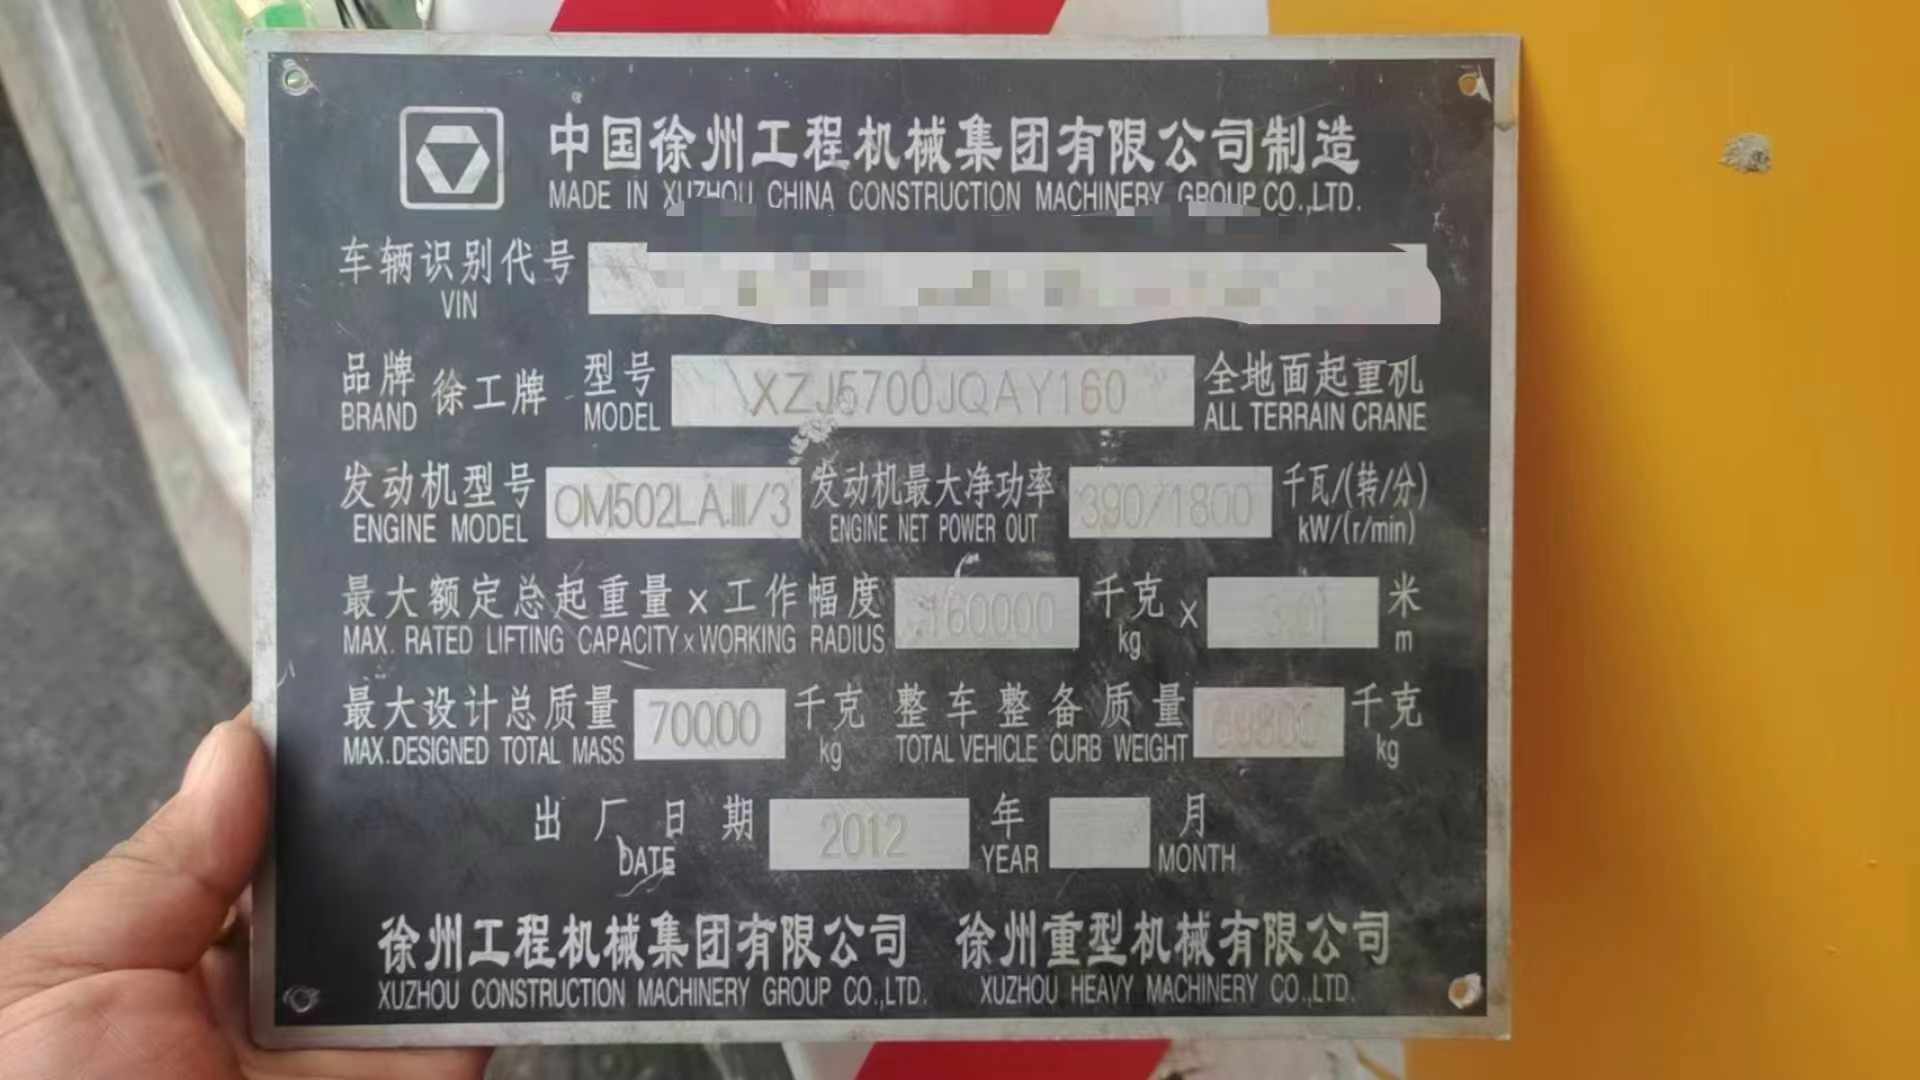 中国徐州工程机械集团有限公司制造
MADE IN XUZHOU CHINA CONSTRUCTION MACHINERY GROUP CO.,LTD.
车辆识别代号
VIN
品牌 徐工牌 型号 XZJ5700JQAY160 全地面起重机
BRAND MODEL ALL TERRAIN CRANE
发动机型号 OM502LA.III/3 发动机最大净功率 390/1800 千瓦/(转/分)
ENGINE MODEL ENGINE NET POWER OUT kW/(r/min)
最大额定总起重量×工作幅度 160000 千克 × 米
MAX. RATED LIFTING CAPACITY×WORKING RADIUS kg m
最大设计总质量 70000 千克 整车整备质量 千克
MAX.DESIGNED TOTAL MASS kg TOTAL VEHICLE CURB WEIGHT kg
出厂日期 2012 年 月
DATE YEAR MONTH
徐州工程机械集团有限公司 徐州重型机械有限公司
XUZHOU CONSTRUCTION MACHINERY GROUP CO.,LTD. XUZHOU HEAVY MACHINERY CO.,LTD.